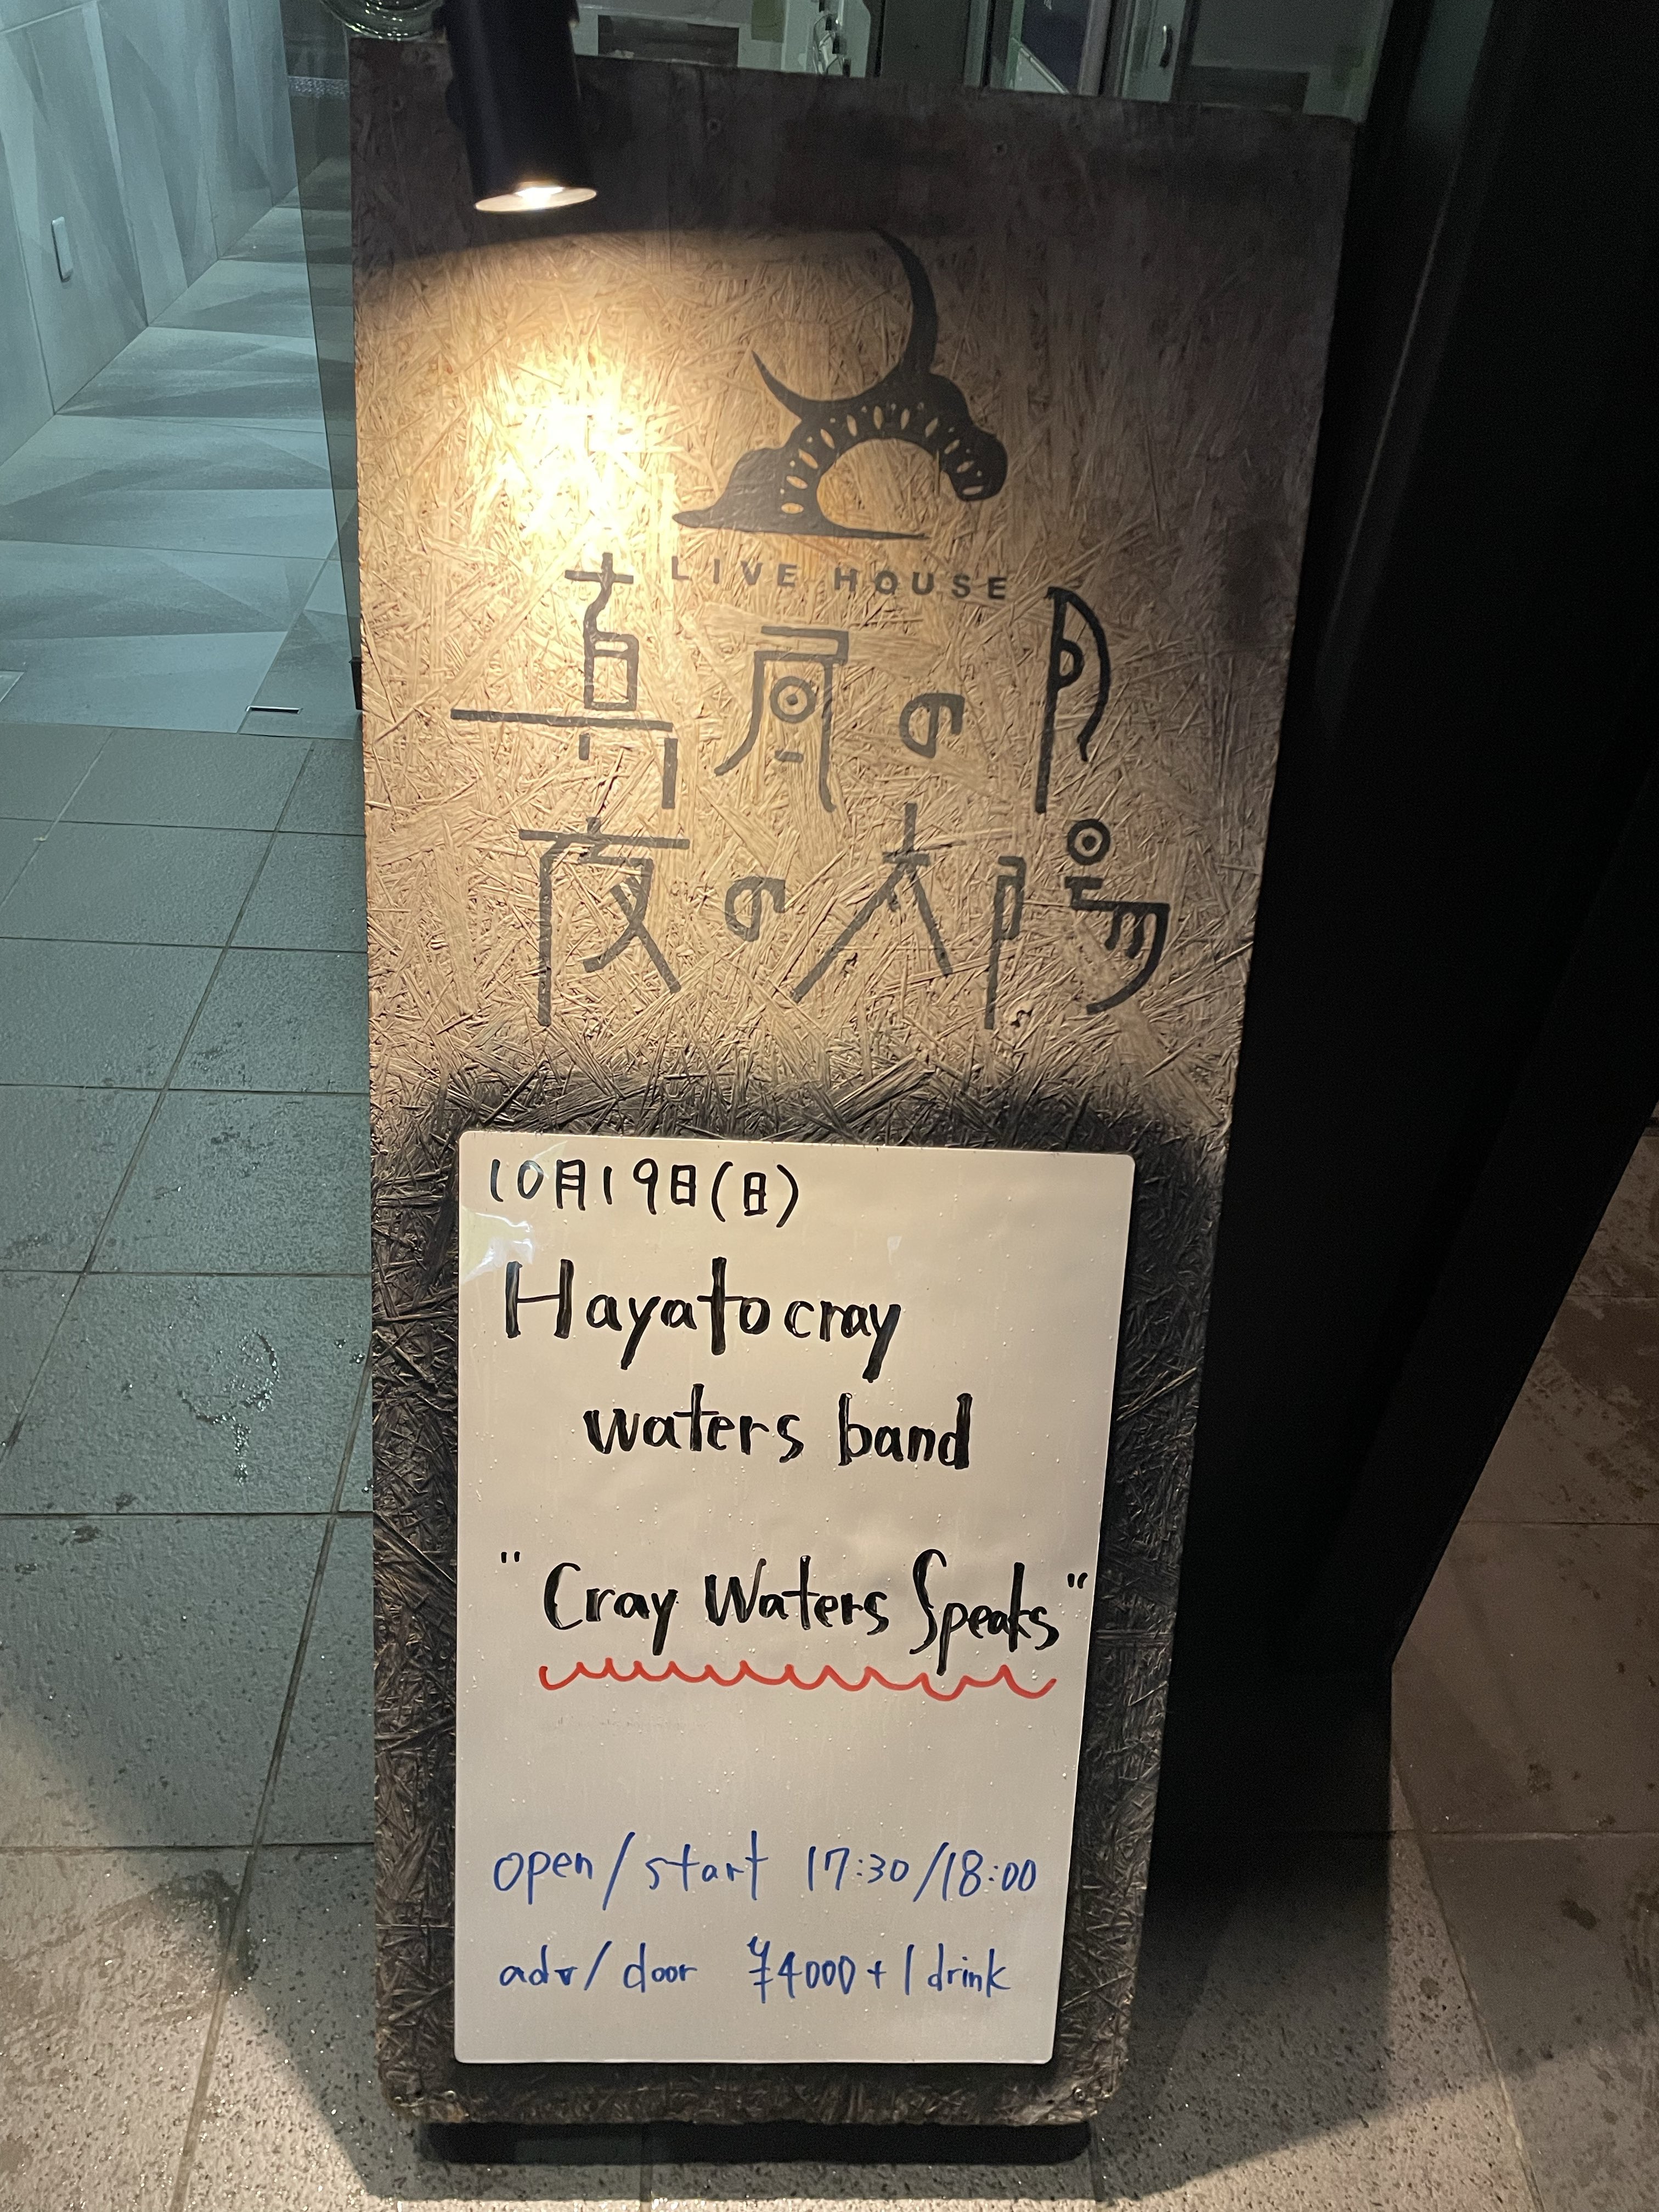 LIVE HOUSE
真昼の月
夜の太陽
10月19日(日)
Hayatocray
waters band
"Cray Waters Speaks"
open/start 17:30/18:00
adv/door ¥4000+1drink